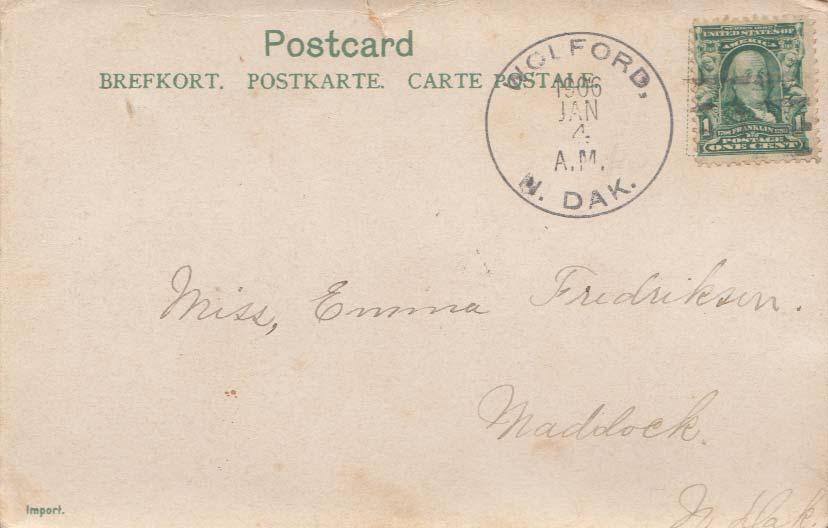 Postcard
BREFKORT. POSTKARTE. CARTE POSTALE.
WOLFORD,
1906
JAN
4
A.M.
N. DAK.
SERIES 1902
UNITED STATES OF
AMERICA
1 1
1706 FRANKLIN 1790
POSTAGE
ONE CENT
Miss, Emma Fredriksen.
Maddock.
N. Dak.
Import.